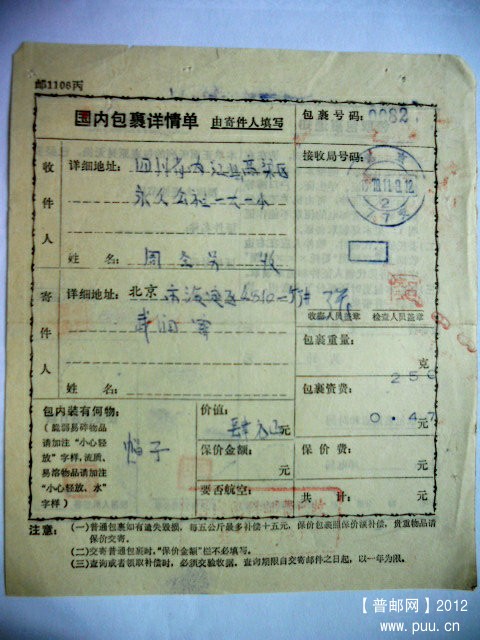 邮1106丙
国内包裹详情单 由寄件人填写
包裹号码:0082
接收局号码:
收件人
详细地址:四川省内江县高梁区
永久公社一大一小
姓名:周全 收
寄件人
详细地址:北京市海淀区
姓名:
收寄人员盖章 检查人员盖章
包裹重量:
250克
包裹资费:
0.47元
包内装有何物:
(脆弱易碎物品
请加注“小心轻
放”字样,流质、
易溶物品请加注
“小心轻放、水”
字样)
帽子
价值:
元
保价金额:
元
保价费:
元
要否航空:
共计:
元
注意:
(一)普通包裹如有遗失毁损,每五公斤最多补偿十五元,保价包裹照保价额补偿,贵重物品请
保价交寄。
(二)交寄普通包裹时,“保价金额”栏不必填写。
(三)查询或者领取补偿时,必须交验收据,查询期限自交寄邮件之日起,以一年为限。
【普邮网】2012
www.puu.cn